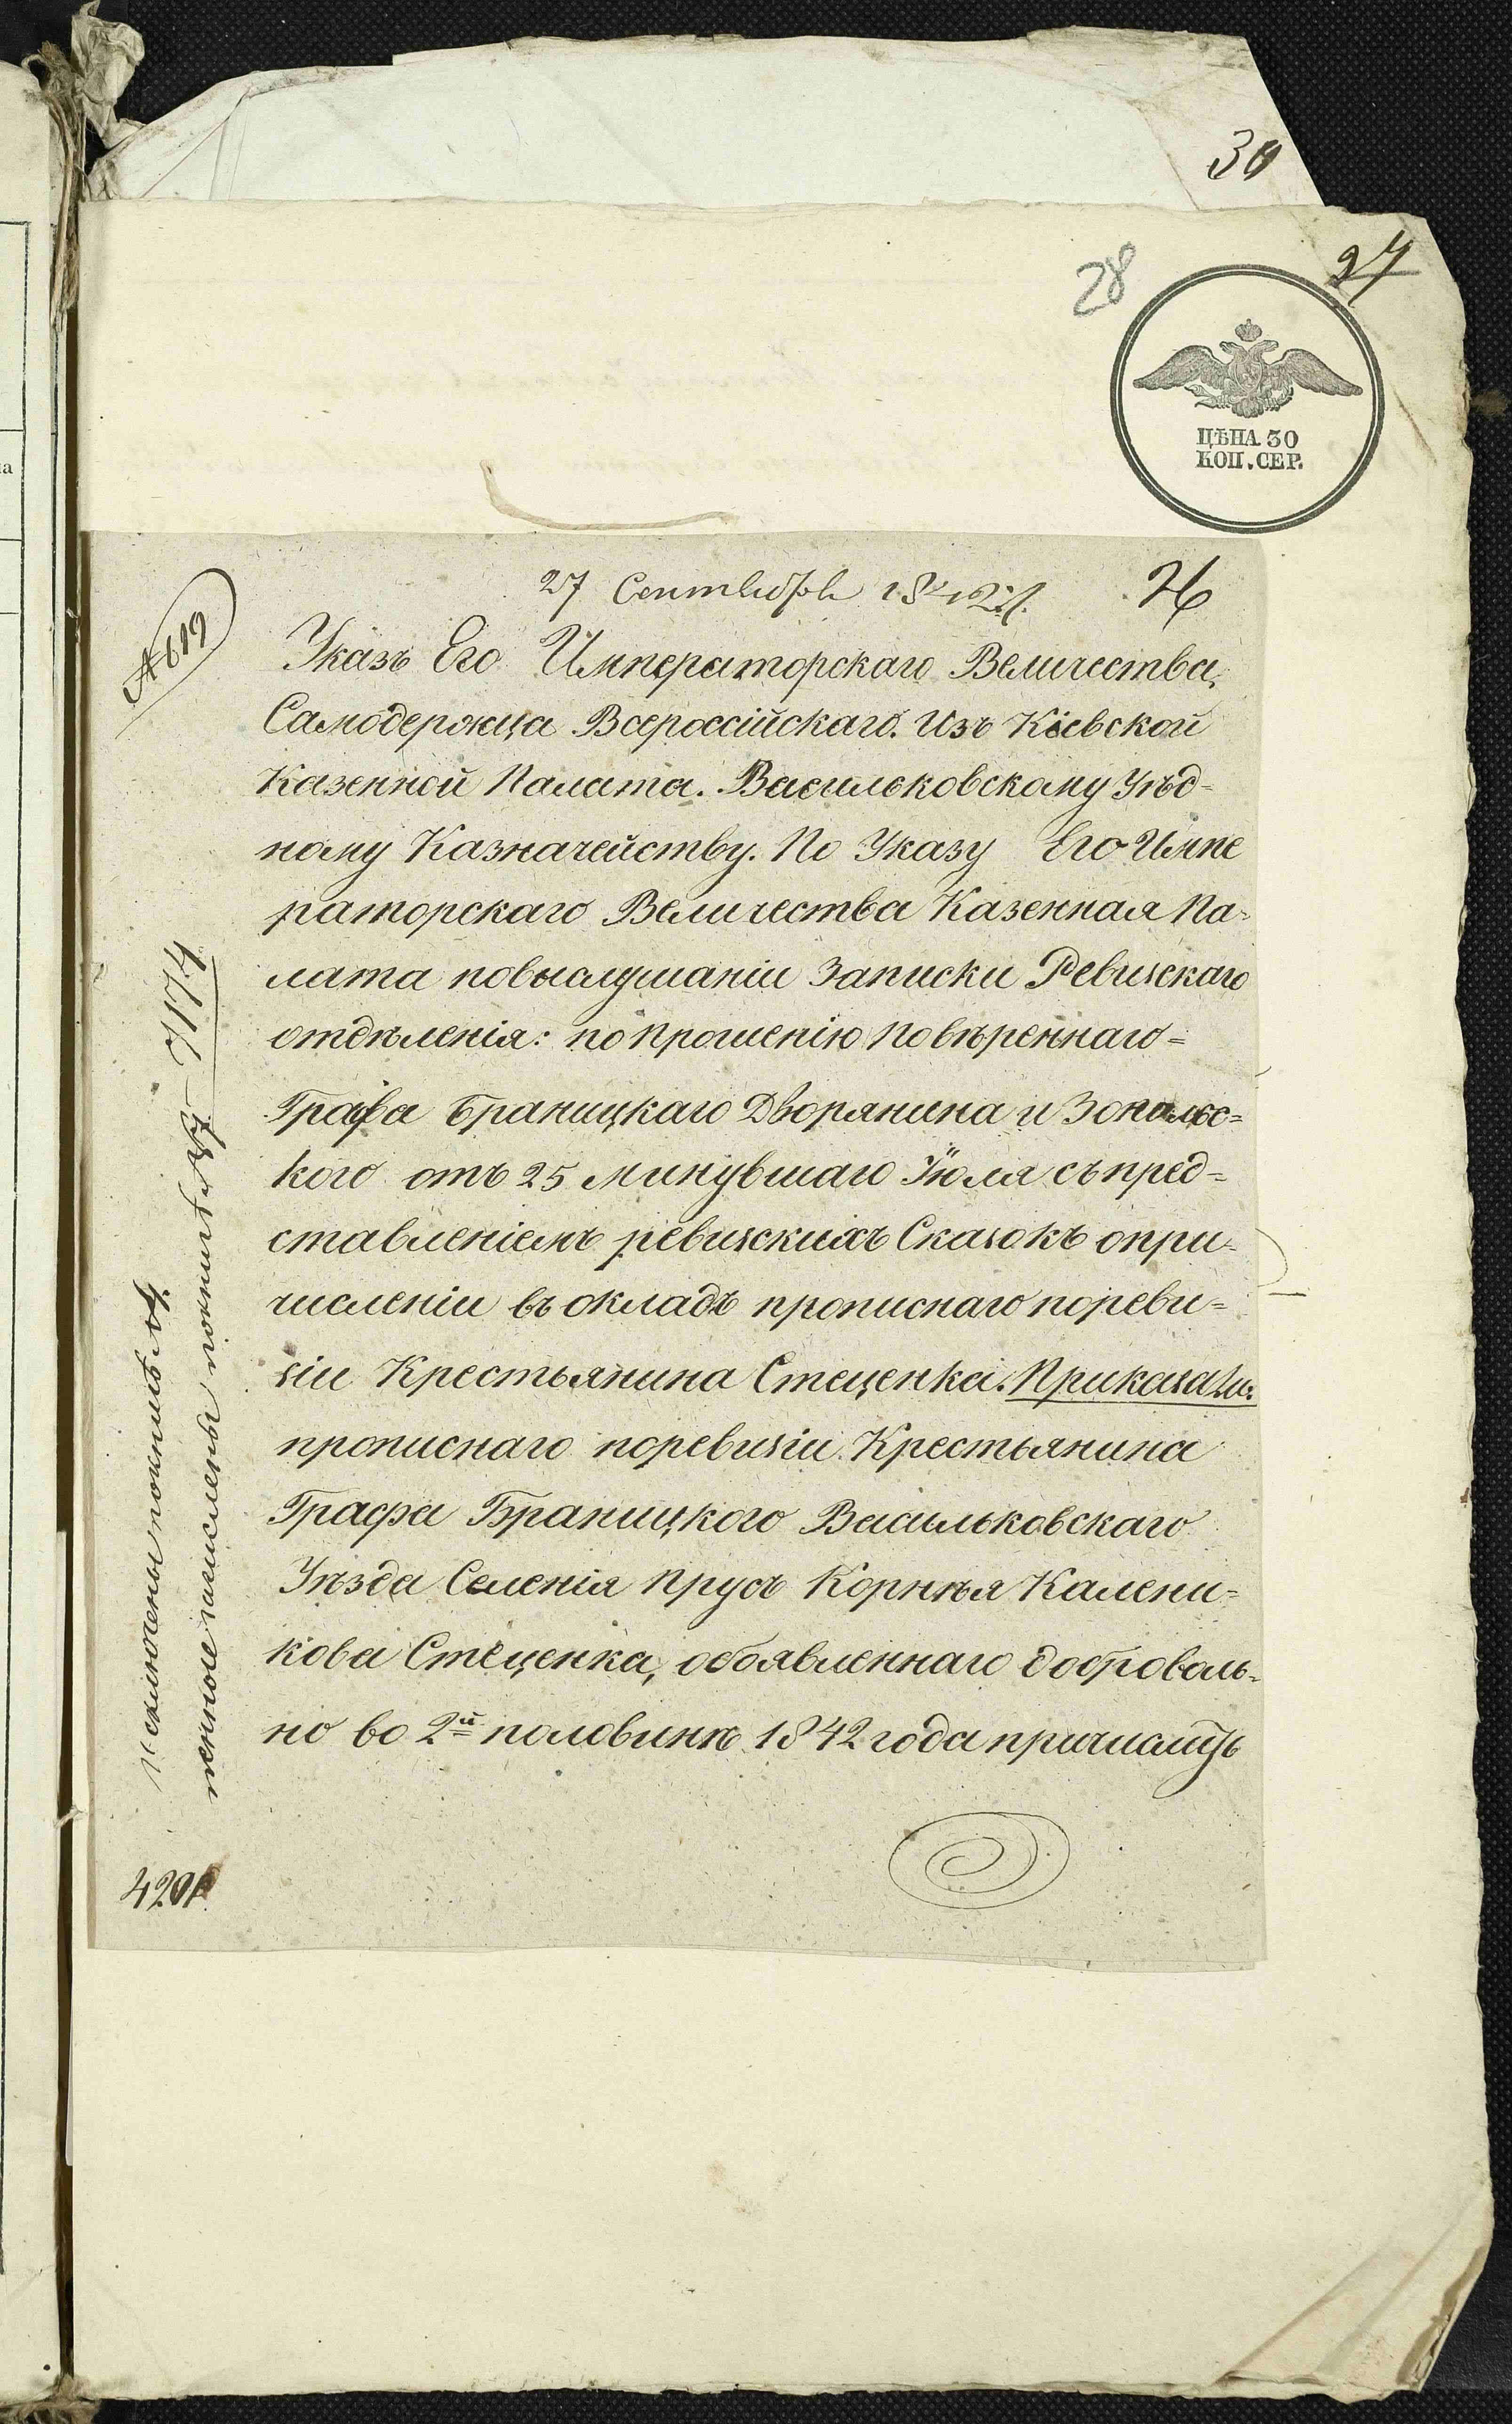 30
28
27
ЦѢНА 30
КОП. СЕР.
27 Сентября 1842 г.
26
№ 619
Указъ Его Императорскаго Величества,
Самодержца Всероссійскаго. Изъ Кіевской
Казенной Палата. Васильковскому Уѣд-
ному Казначейству. По Указу Его Импе
раторскаго Величества Казенная Па-
лата повыслушаніи Записки Ревизскаго
отдѣленія: по прошенію повѣреннаго-
Графа Браницкаго Дворянина и
кого отъ 25 минувшаго Іюля съ пред-
ставленіемъ ревизскихъ Сказокъ опри-
численіи въ окладъ прописнаго пореви-
зіи Крестьянина Стеценка. Приказали:
прописнаго поревизіи Крестьянина
Графа Браницкого Васильковскаго
Уѣзда Селенія Прусъ Корнѣя Калени-
кова Стеценка, обоявленнаго доброволь-
но во 2й половинѣ 1842 года причислить
4201